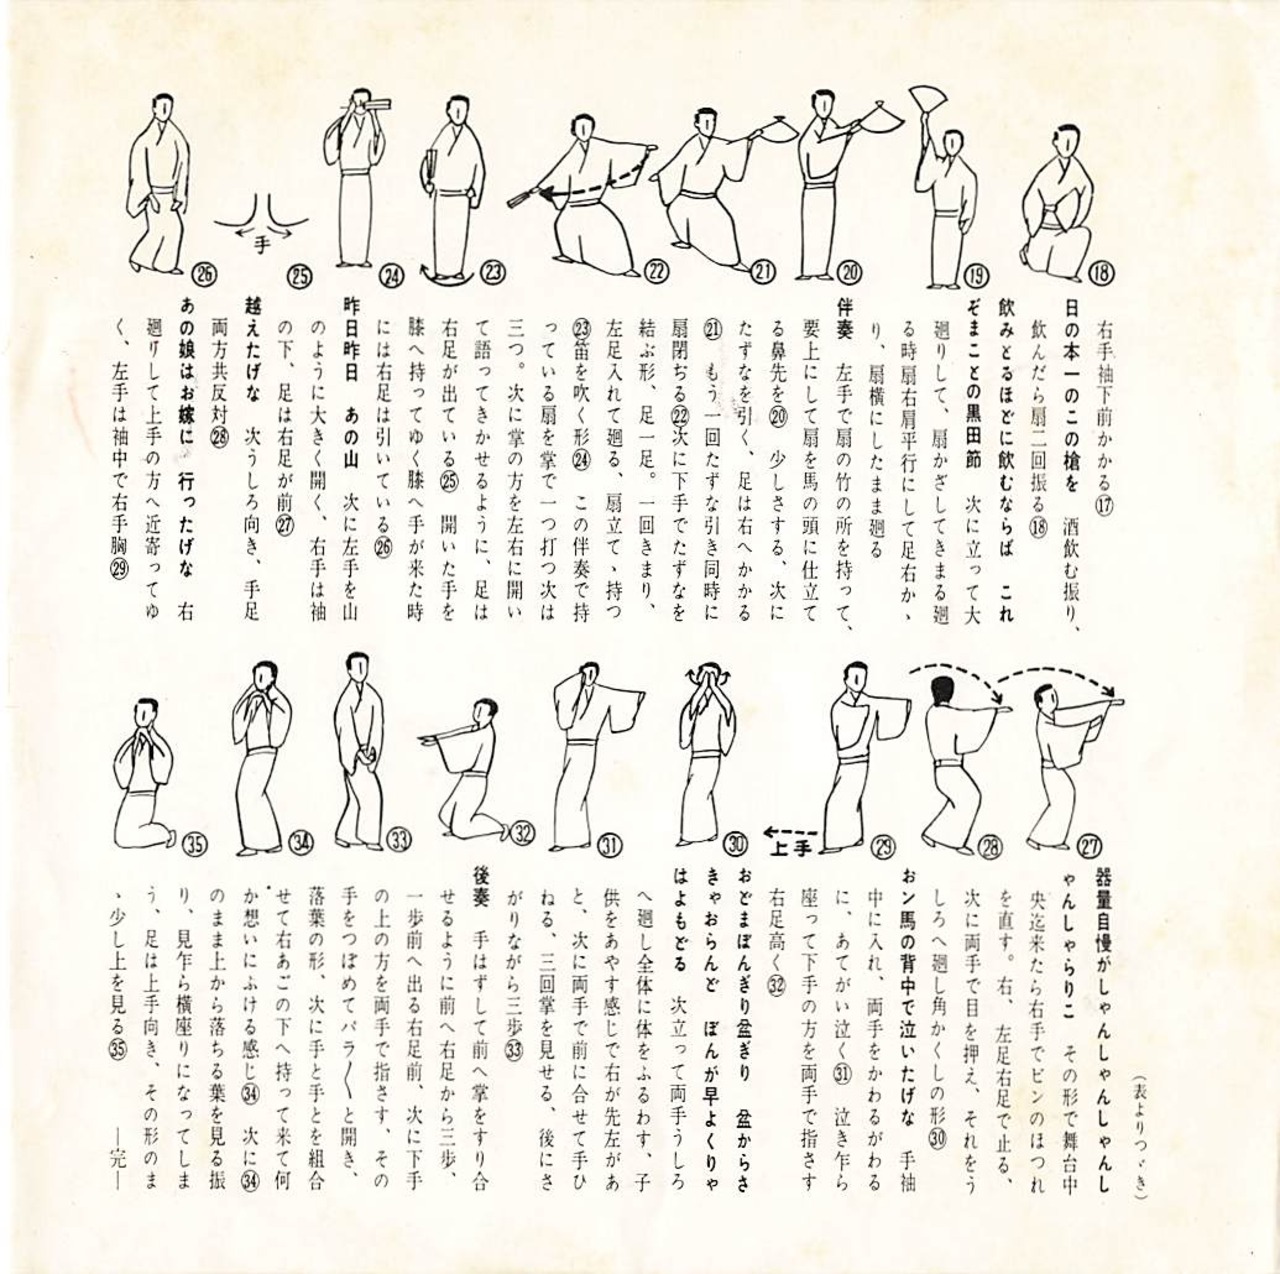 右手袖下前かかる⑰
日の本一のこの槍を　酒飲む振り、
飲んだら扇二回振る⑱
飲みとるほどに飲むならば　これ
ぞまことの黒田節　次に立って大
廻りして、扇かざしてきまる廻
る時扇右肩平行にして足右か、
り、扇横にしたまま廻る
伴奏　左手で扇の竹の所を持って、
要上にして扇を馬の頭に仕立て
る鼻先を⑳　少しさする、次に
たずなを引く、足は右へかかる
㉑　もう一回たずな引き同時に
扇閉ぢる㉒次に下手でたずなを
結ぶ形、足一足。一回きまり、
左足入れて廻る、扇立て、持つ
㉓笛を吹く形㉔　この伴奏で持
っている扇を掌で一つ打つ次は
三つ。次に掌の方を左右に開い
て語ってきかせるように、足は
右足が出ている㉕　開いた手を
膝へ持ってゆく膝へ手が来た時
には右足は引いている㉖
昨日昨日　あの山　次に左手を山
のように大きく開く、右手は袖
の下、足は右足が前㉗
越えたげな　次うしろ向き、手足
両方共反対㉘
あの娘はお嫁に　行ったげな　右
廻りして上手の方へ近寄ってゆ
く、左手は袖中で右手胸㉙
⑱
⑲
⑳
㉑
㉒
㉓
㉔
㉕
手
㉖
（表よりつゞき）
器量自慢がしゃんしゃんしゃんし
ゃんしゃらりこ　その形で舞台中
央迄来たら右手でビンのほつれ
を直す。右、左足右足で止る、
次に両手で目を押え、それをう
しろへ廻し角かくしの形㉚
おン馬の背中で泣いたげな　手袖
中に入れ、両手をかわるがわる
に、あてがい泣く㉛　泣き乍ら
座って下手の方を両手で指さす
右足高く㉜
おどまぼんぎり盆ぎり　盆からさ
きゃおらんど　ぼんが早よくりゃ
はよもどる　次立って両手うしろ
へ廻し全体に体をふるわす、子
供をあやす感じで右が先左があ
と、次に両手で前に合せて手ひ
ねる、三回掌を見せる、後にさ
がりながら三歩㉝
後奏　手はずして前へ掌をすり合
せるように前へ右足から三歩、
一歩前へ出る右足前、次に下手
の上の方を両手で指さす、その
手をつぼめてパラ〳〵と開き、
落葉の形、次に手と手とを組合
せて右あごの下へ持って来て何
か想いにふける感じ㉞　次に㉞
のまま上から落ちる葉を見る振
り、見乍ら横座りになってしま
う、足は上手向き、その形のま
、少し上を見る㉟　―完―
㉗
㉘
㉙
上手
㉚
㉛
㉜
㉝
㉞
㉟